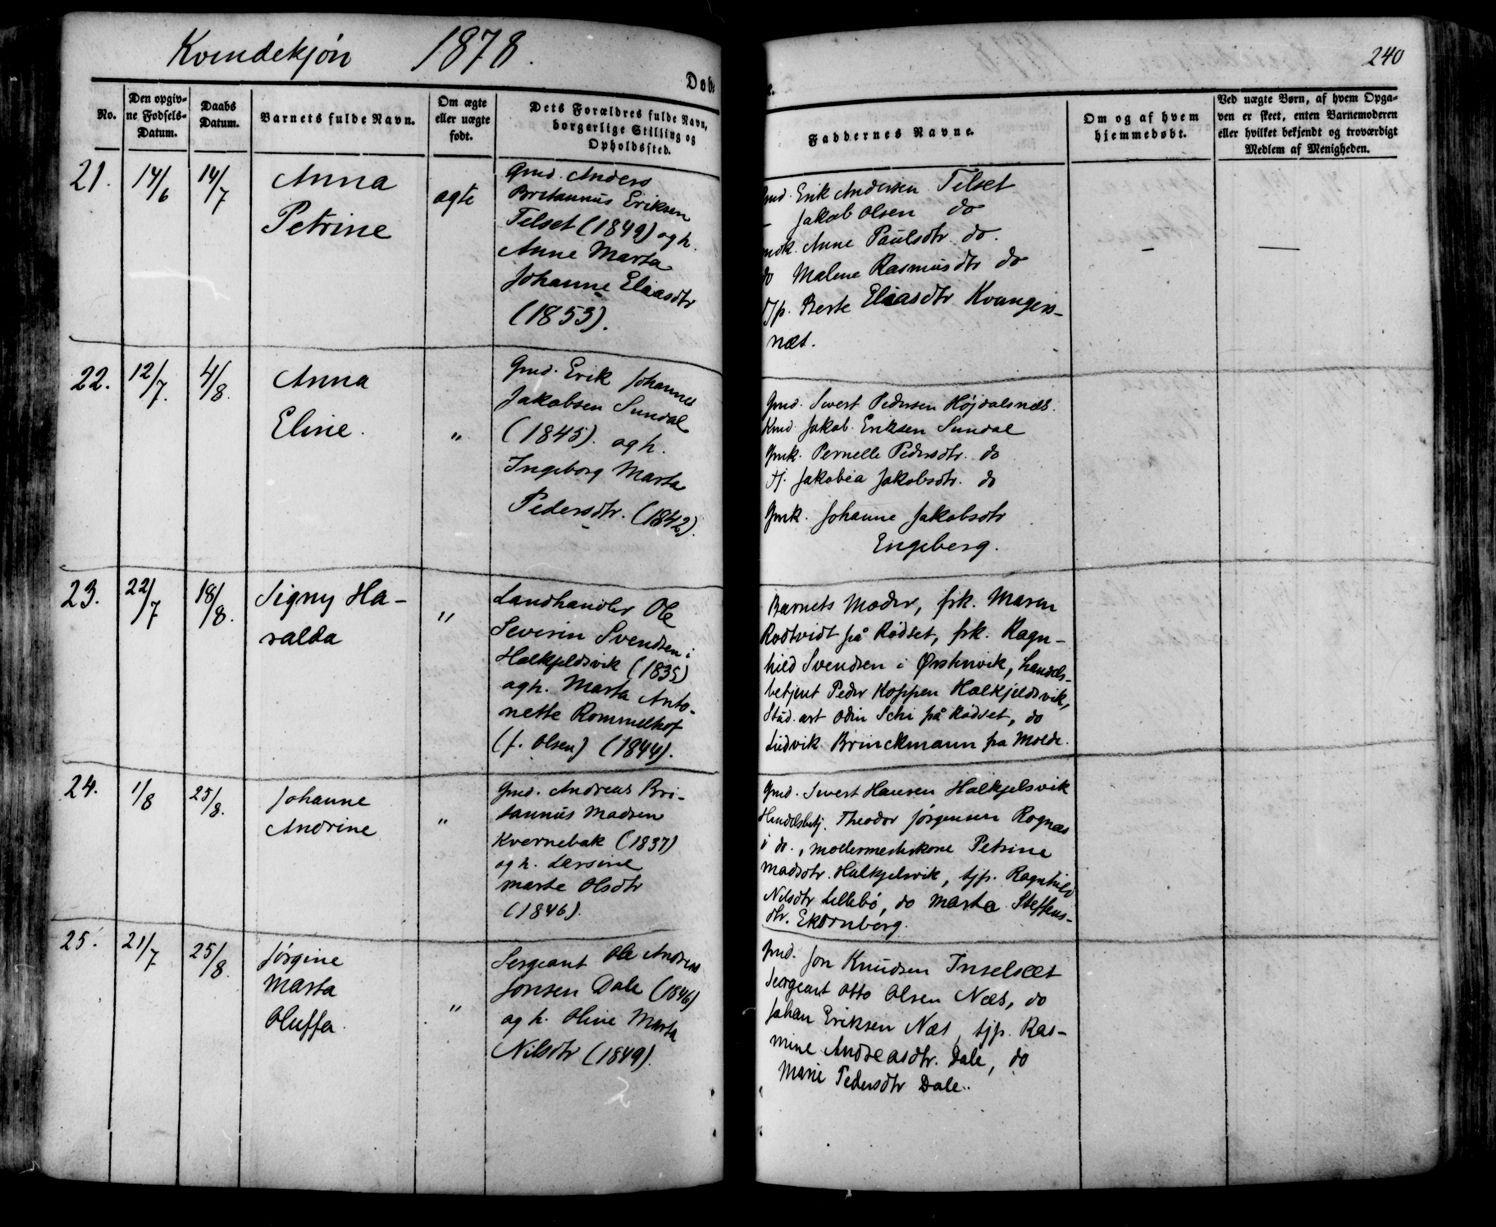 Kvindekjøn 1878.
240
Døbe
No.
Den opgiv-
ne Fødsels-
Datum.
Daabs
Datum.
Barnets fulde Navn.
Om ægte
eller uægte
født.
Dets Forældres fulde Navn,
borgerlige Stilling og
Opholdssted.
Faddernes Navne.
Om og af hvem
hjemmedøbt.
Ved uægte Børn, af hvem Opga-
ven er skeet, enten Barnemoderen
eller hvilket bekjendt og troværdigt
Medlem af Menigheden.
21. 14/6 14/7 Anna
Petrine
ægte
Gmd. Anders
Britannus Eriksen
Telset (1849) og h.
Anne Marta
Johanne Elaasdtr
(1853).
Gmd. Erik Andersen Telset
Jakob Olsen do
Anne Paulsdtr. do.
do Malene Rasmusdtr do
Tjp. Berte Eliasdtr Kvangers-
næs.
— —
22. 12/7. 4/8. Anna
Eline.
"
Gmd. Erik Johannes
Jakobsen Sundal
(1845). og h.
Ingeborg Marta
Pedersdtr. (1842).
Gmd. Sivert Pedersen Højdalsnæs.
Kmd. Jakob Eriksen Sundal
Gmk. Pernelle Pedersdtr. do
Tj. Jakobea Jakobsdtr. do
Gmk. Johanne Jakobsdtr
Engeberg.
23. 22/7 18/8. Signy Ha-
ralda
"
Landhandler Ole
Severin Svendsen i
Halkjeldsvik (1835)
og h. Marta Anto-
nette Rommelhof
(f. Olsen) (1844).
Barnets Moder, frk. Maren
Rødtvidt på Rødset, frk. Ragn-
hild Svendsen i Ørstenvik, handels-
betjent Peder Koppen Halkjeldsvik,
Stud. art Odin Schi på Rødset, do
Ludvik Brinckmann fra Molde.
24. 1/8 25/8. Johanne
Andrine
"
Gmd. Andreas Bri-
tannus Madsen
Kvernebak (1837)
og h. Lersine
Marte Olsdtr
(1846).
Gmd. Sivert Hansen Halkjelsvik
Handelsbetj. Theodor Jørgensen Rognæs
i do., modermedskone Petrine
Madsdtr. Halkjelsvik, tjp. Ragnhild
Nilsdtr Lillebø, do Marta Steffens-
dtr. Ekornberg.
25. 21/7 25/8. Jørgine
Marta
Oluffa.
"
Sergeant Ole Andreas
Jonsen Dale (1846)
og h. Oline Marta
Nilsdtr (1849).
Gmd. Jon Knudsen Inselset
Sergeant Otto Olsen Næs, do
Johan Eriksen Næs, tjp. Ras-
mine Andreasdtr. Dale, do
Marie Pedersdtr Dale.